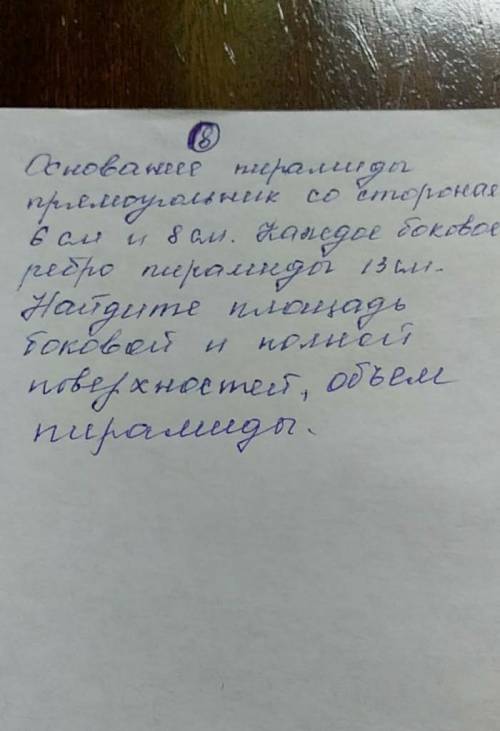 8
Основание пирамиды
прямоугольник со стороная
6 см и 8 см. Каждое боковое
ребро пирамиды 13 см.
Найдите площадь
боковой и полной
поверхностей, объем
пирамиды.